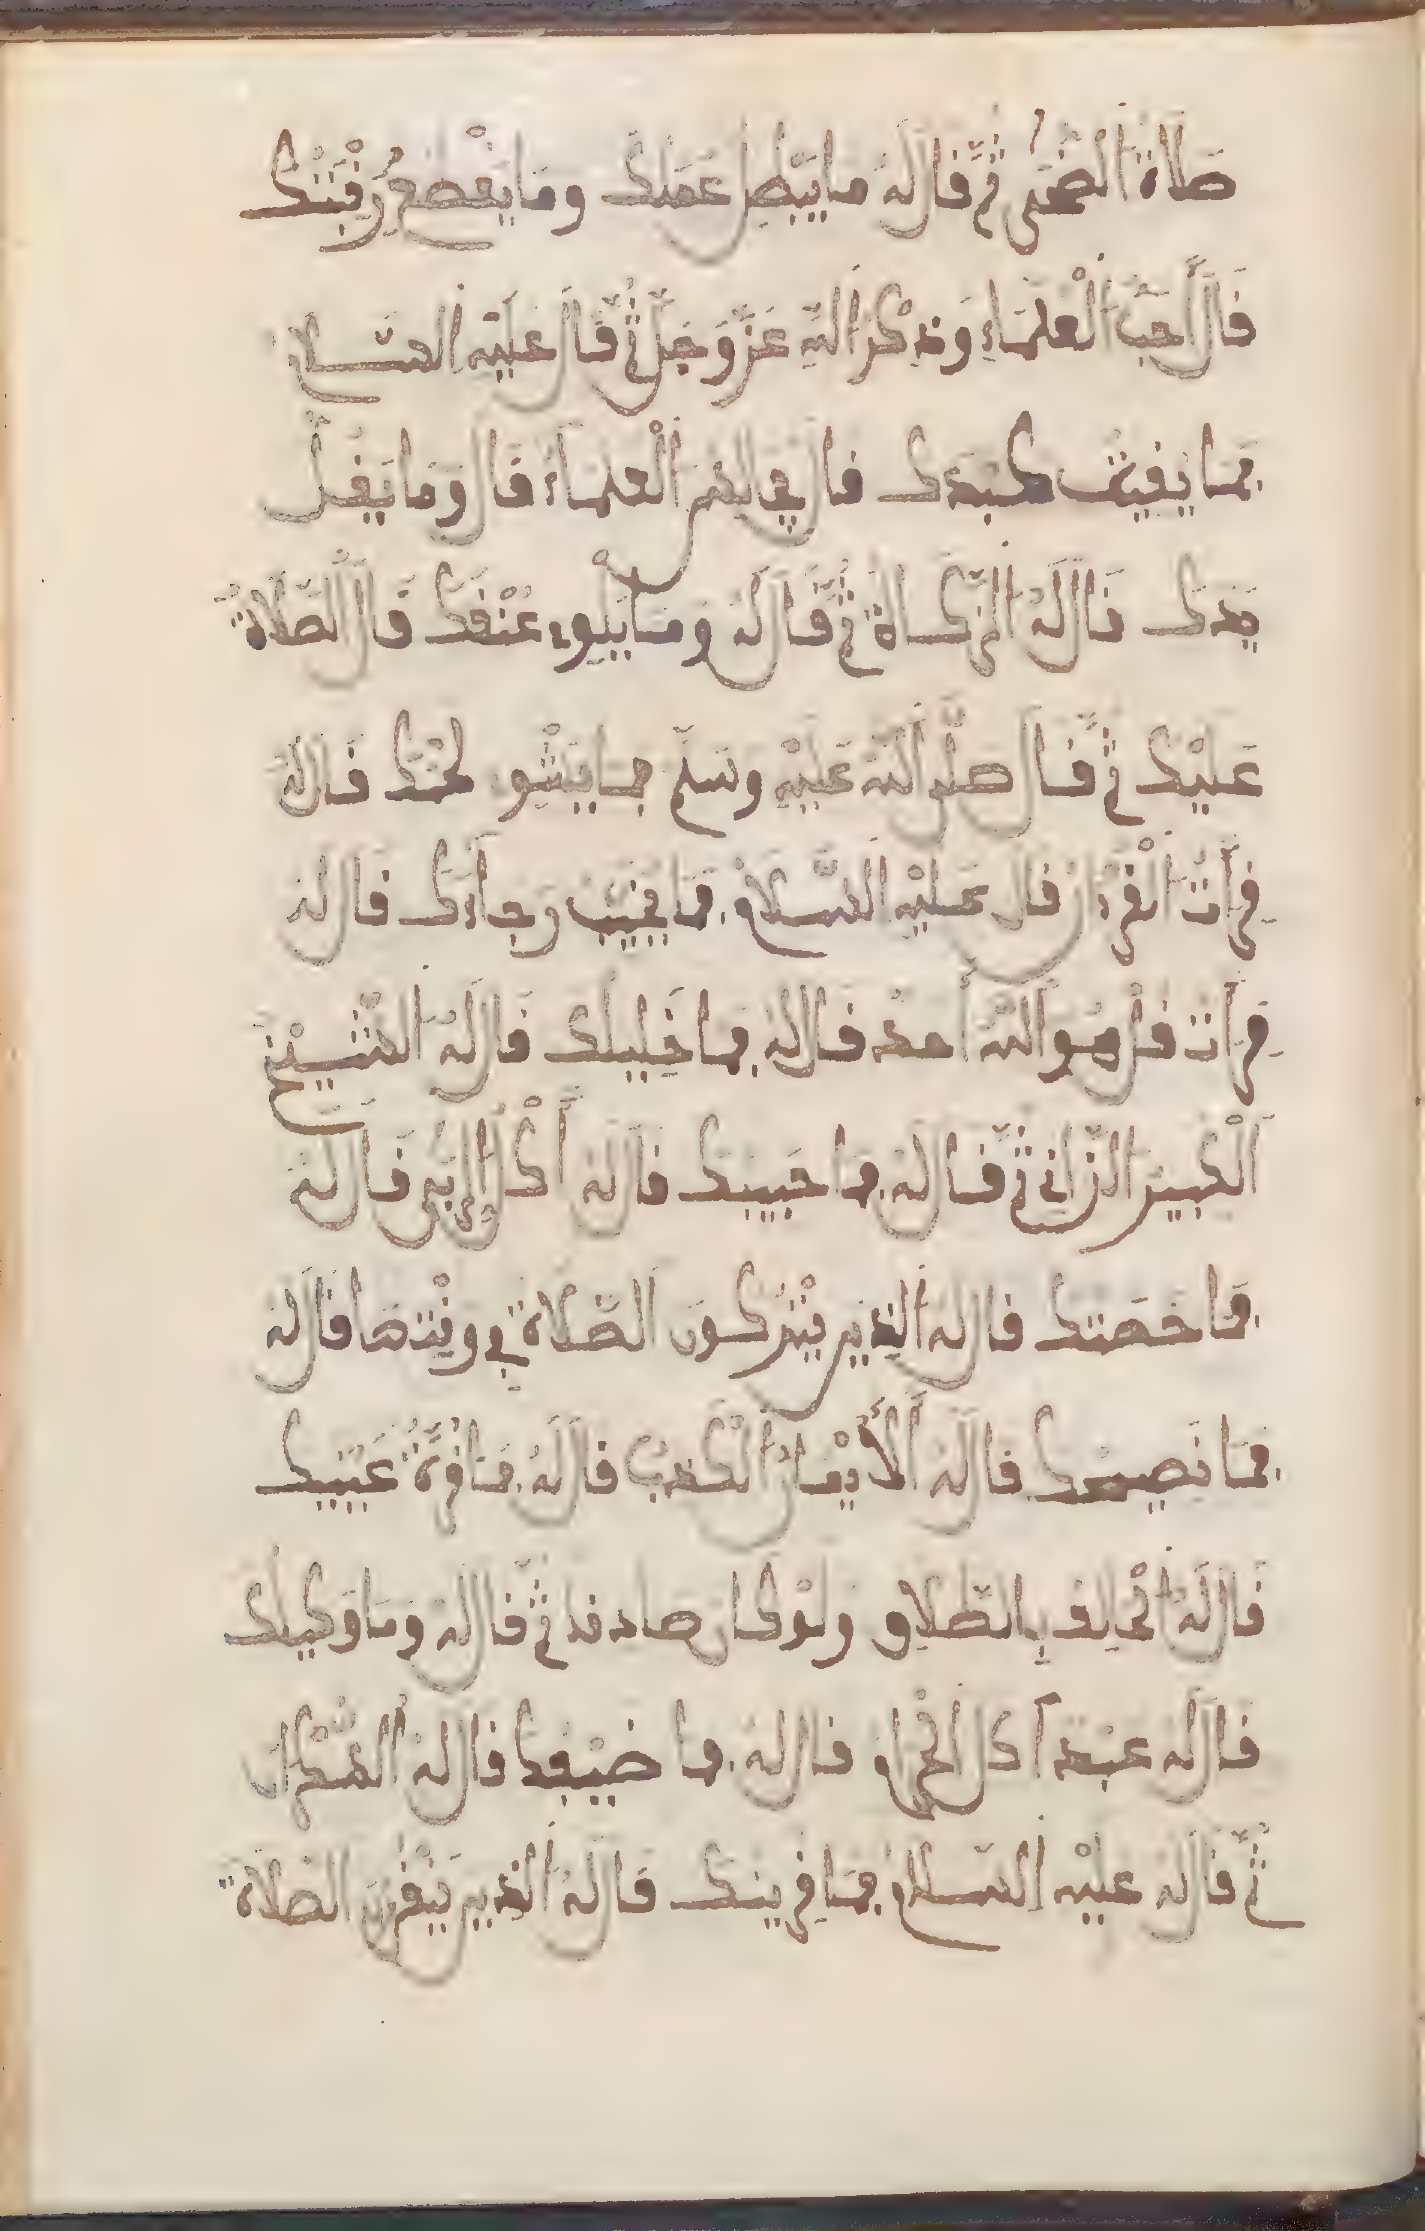 صلاة الضحى ثم قال له ما يبطل عملك وما يقطع رقبتك
قال أحب العلماء وذكر الله عز وجل ثم قال عليه السلام
فما يفيت كبدك قال مجالس العلماء قال وما يغل
يدك قال له الزكاة ثم قال له وما يلوي عنقك قال الصلاة
عليك ثم قال صلى الله عليه وسلم فما يشوي لحمك قال له
قرأت القرءان قال عليه السلام فما يخيب رجاءك قال له
قرأت قل هو الله أحد قال له فما خليلك قال له الشيخ
الكبير الزاني ثم قال له فما حبيبك قال له أكل الربى قال له
فما خصمك قال له الذين يتركون الصلاة في وقتها قال له
فما نصيحك قال له الأيمان الكذب قال له فما قرة عينيك
قال له الحالف بالطلاق ولو كان صادقا ثم قال له وما وكيلك
قال له عبد أكل الحرام قال له فما ضيفك قال له السكران
ثم قال له عليه السلام فما قرينك قال له الذين ينقرون الصلاة